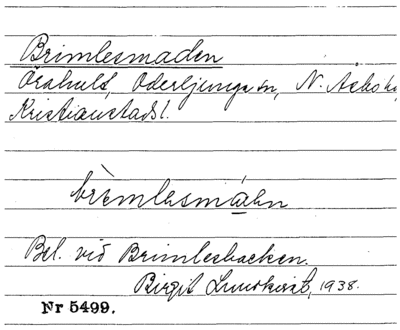 Brimlesmaden
Örahult, Oderljunga sn, N. Åsbo h
Kristianstads l.
brèmlesmáen
Bel. vid Brimlesbacken.
Birgit Lundkvist, 1938.
Nr 5499.